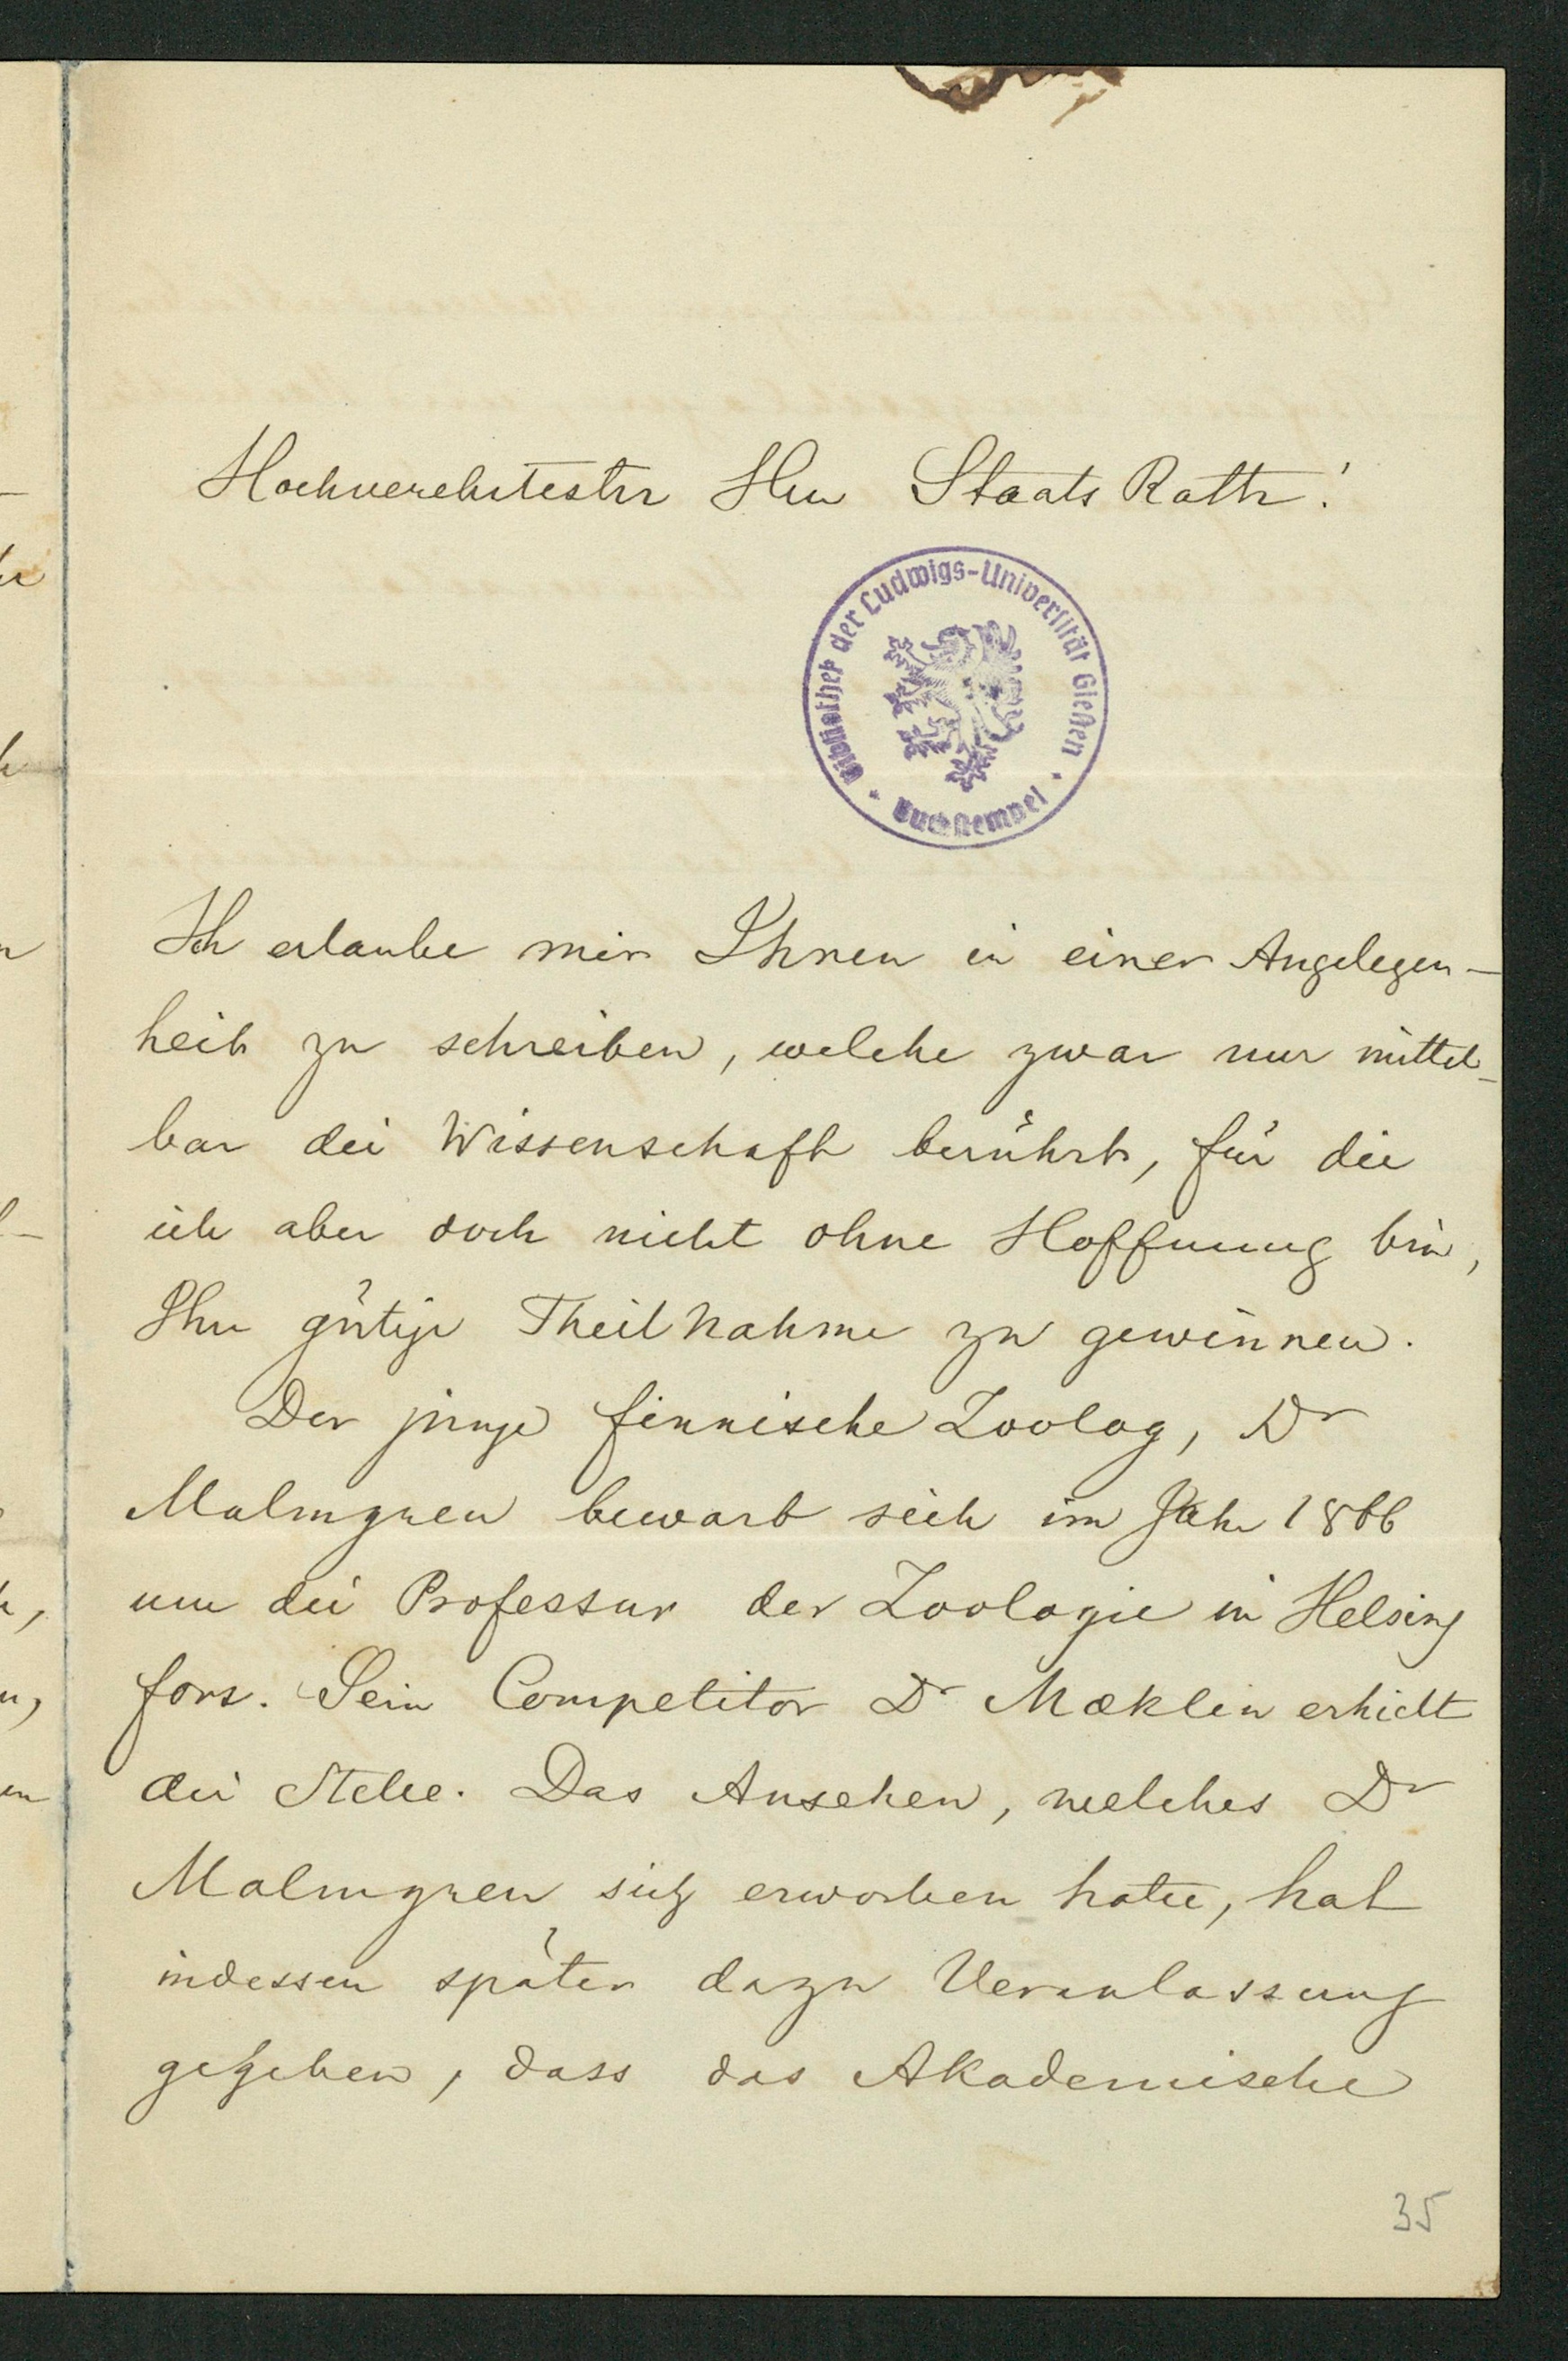 Hochverehrtester Herr Staats Rath!
Bibliothek der Ludwigs-Universität Gießen
Buchstempel
Ich erlaube mir Ihnen in einer Angelegen-
heit zu schreiben, welche zwar nur mittel-
bar die Wissenschaft berührt, für die
ich aber doch nicht ohne Hoffnung bin,
Ihre gütige Theilnahme zu gewinnen.
Der junge finnische Zoolog, Dr
Malmgren bewarb sich im Jahr 1866
um die Professur der Zoologie in Helsing
fors. Sein Competitor Dr Mæklin erhielt
die Stelle. Das Ansehen, welches Dr
Malmgren sich erworben hatte, hat
indessen später dazu Veranlassung
gegeben, dass das Akademische
35